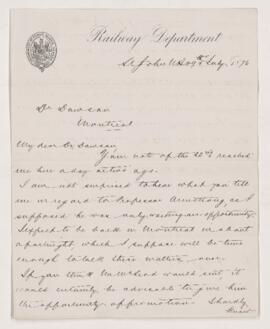 Railway Department
St John NB 29th July 1876
Dr Dawson
Montreal
My dear Dr Dawson
Your note of the 22nd reached
me here a day or two ago.
I am not surprised to hear what you tell
me in regard to Professor Armstrong, as I
supposed he was only waiting an opportunity.
I expect to be back in Montreal in about
a fortnight, which I suppose will be time
enough to talk these matters over.
If you think Mr McLeod would suit it
would certainly be advisable to give him
the opportunity of promotion. I hardly
know